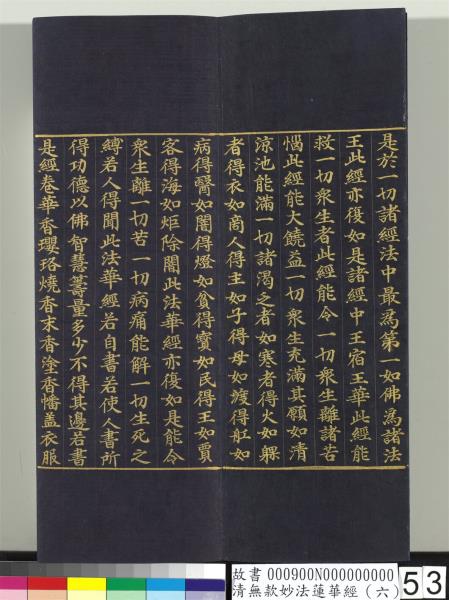 是於一切諸經法中最為第一如佛為諸法
王此經亦復如是諸經中王宿王華此經能
救一切眾生者此經能令一切眾生離諸苦
惱此經能大饒益一切眾生充滿其願如清
涼池能滿一切諸渴乏者如寒者得火如躶
者得衣如商人得主如子得母如渡得舡如
病得醫如闇得燈如貧得寶如民得王如賈
客得海如炬除闇此法華經亦復如是能令
眾生離一切苦一切病痛能解一切生死之
縛若人得聞此法華經若自書若使人書所
得功德以佛智慧籌量多少不得其邊若書
是經卷華香瓔珞燒香末香塗香幡蓋衣服
故書 000900N000000000
清無款妙法蓮華經(六)
53